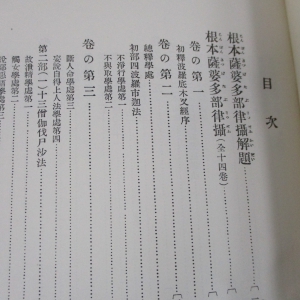 目次
根本薩婆多部律攝解題
根本薩婆多部律攝（全十四卷）
卷の第一
初釋波羅底木叉經序
卷の第二
總釋學處
初部四波羅市迦法
不淨行學處第一
不與取學處第二
卷の第三
斷人命學處第三
妄說自得上人法學處第四
第二部（一）十三僧伽伐尸沙法
故泄精學處第一
觸女學處第二